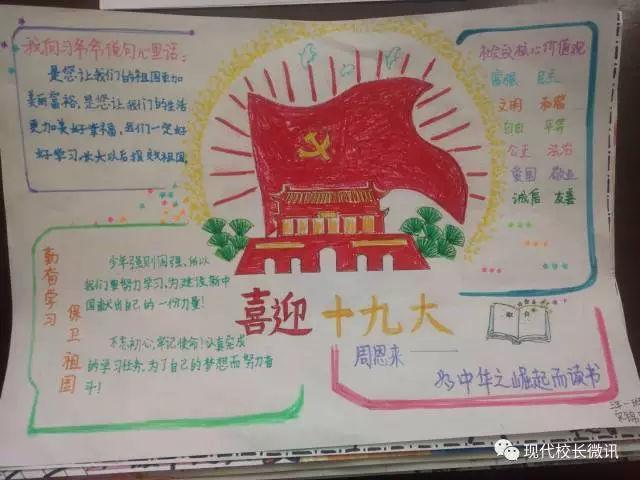 我向习爷爷说句心里话：
是您让我们的祖国更加
美丽富裕，是您让我们的生活
更加美好幸福，我们一定好
好学习，长大以后报效祖国。
社会主义核心价值观
富强 民主
文明 和谐
自由 平等
公正 法治
爱国 敬业
诚信 友善
勤奋学习
保卫祖国
少年强则国强，所以
我们要努力学习，为建设新中
国献出自己的一份力量！
不忘初心，牢记使命！认真完成
的学习任务，为了自己的梦想而努力奋
斗！
喜迎十九大
周恩来——
为中华之崛起而读书
现代校长微讯